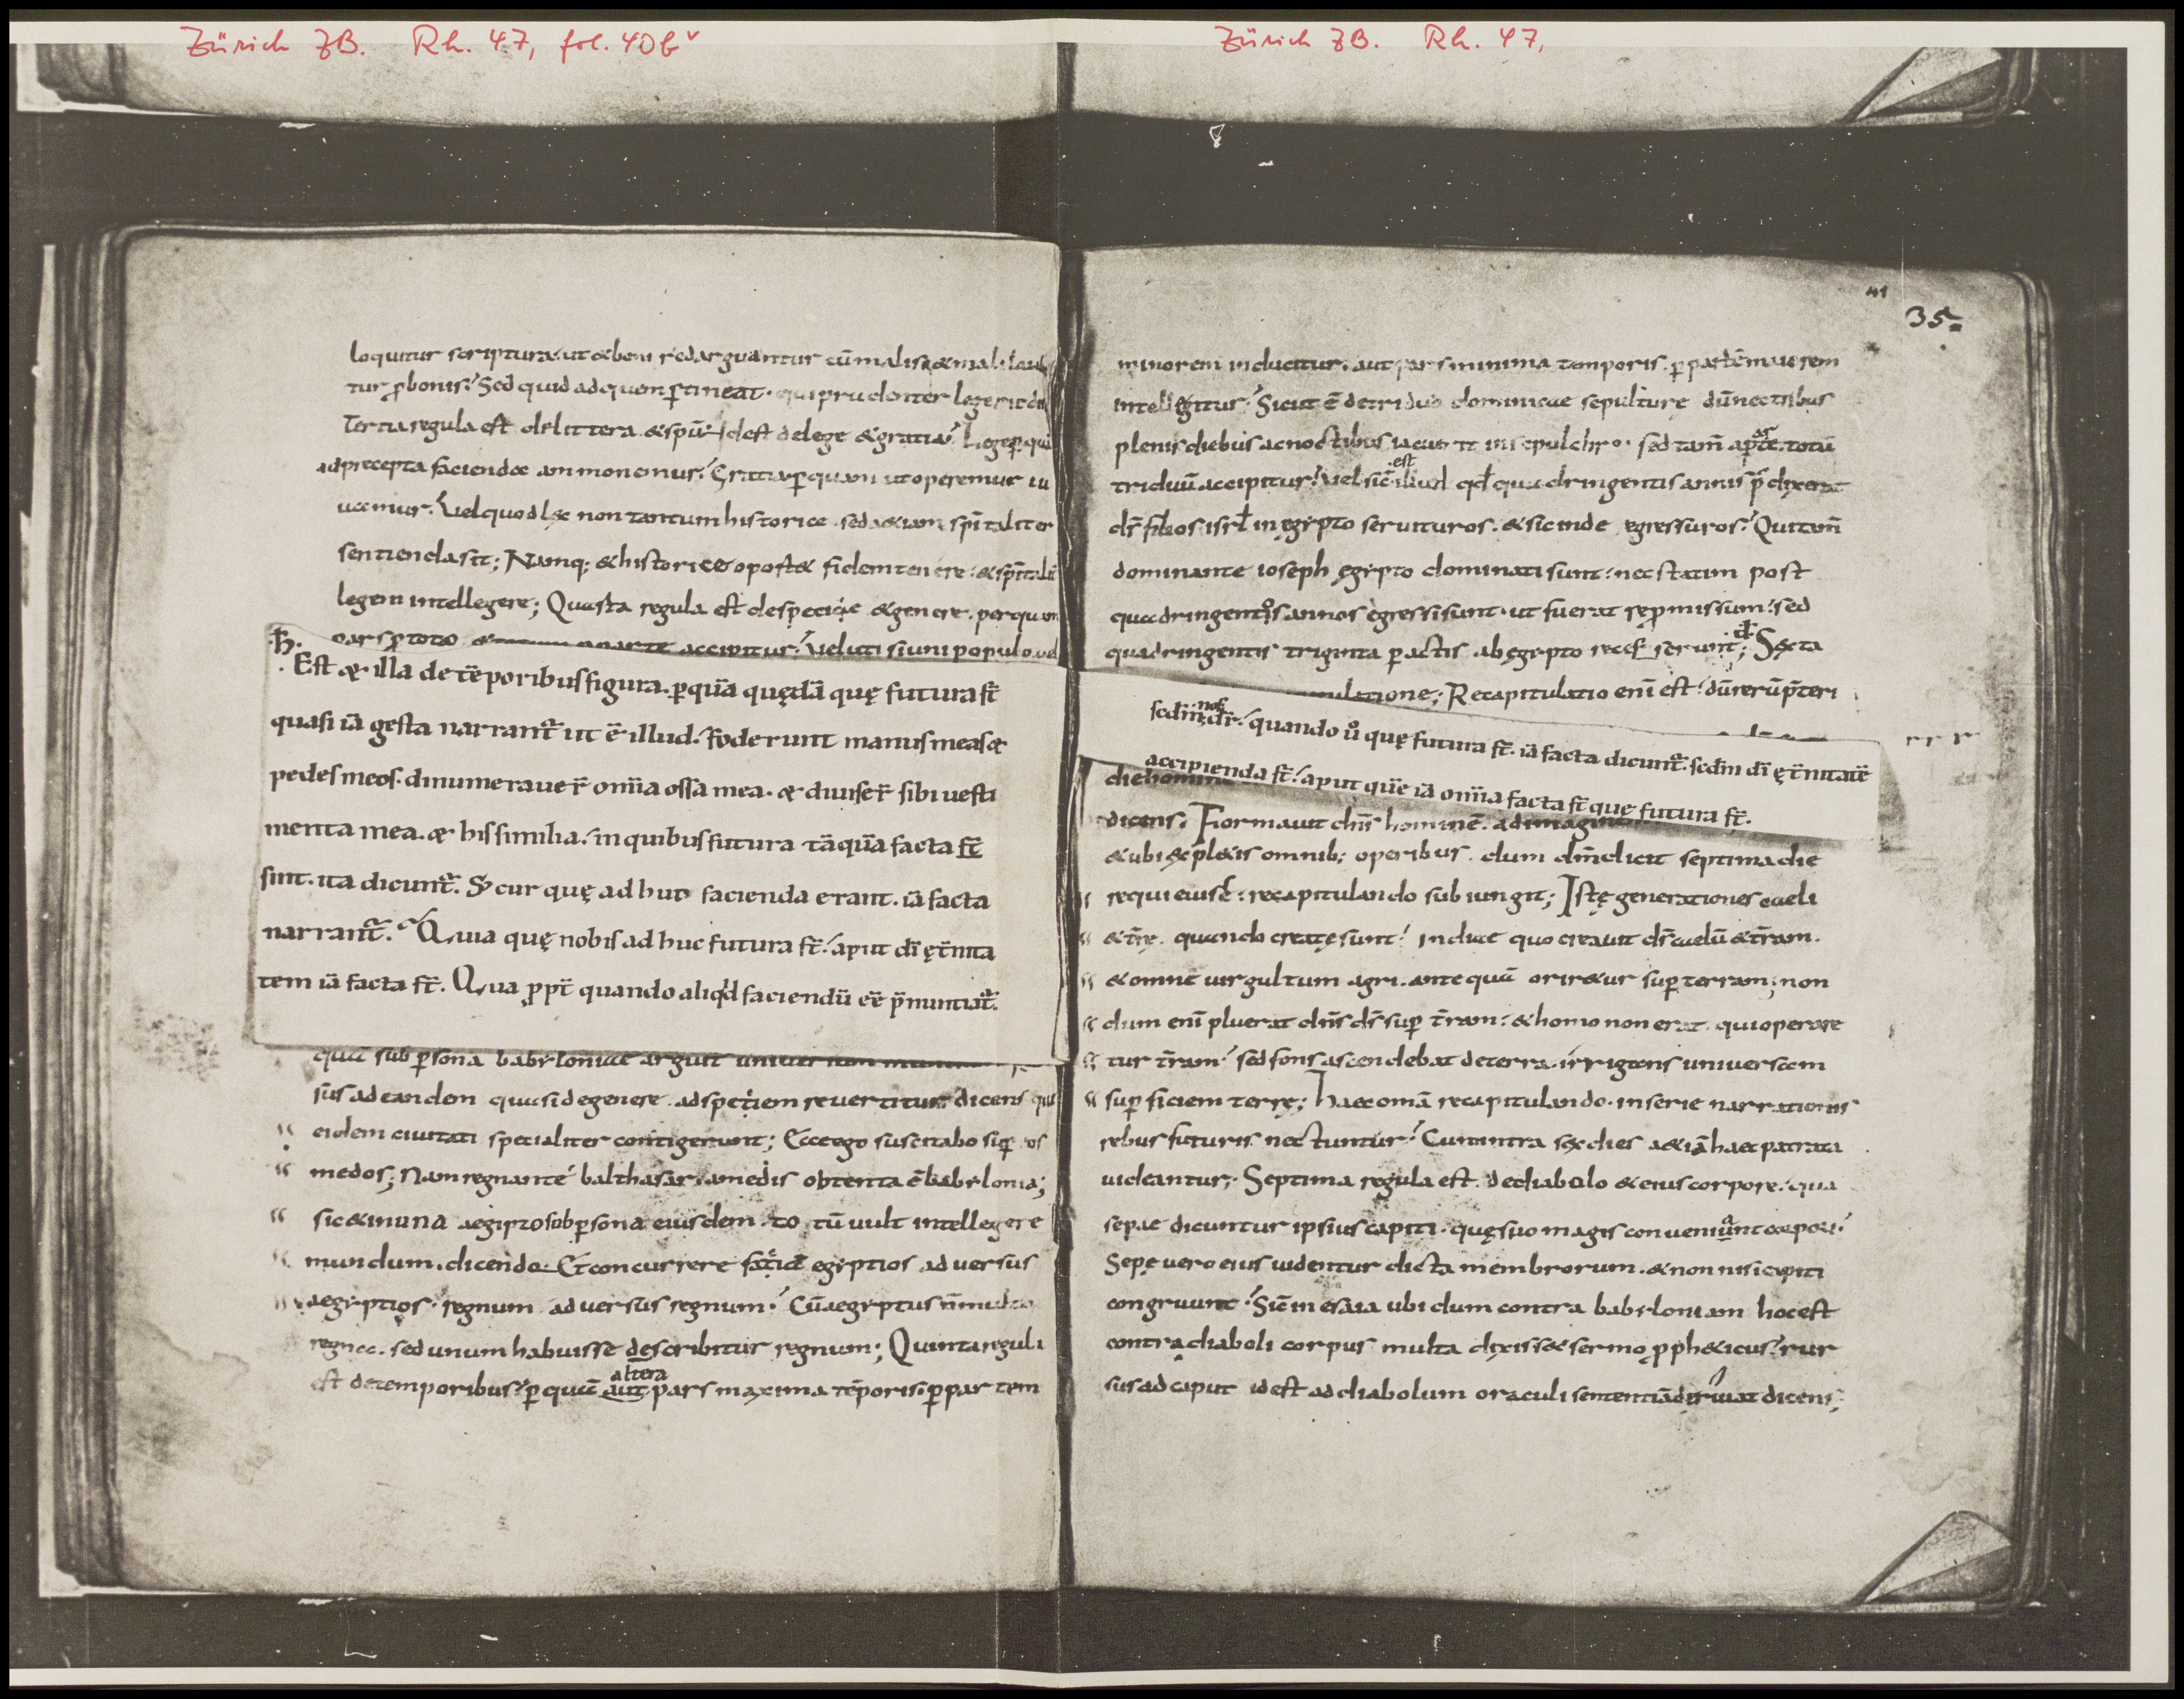 Zürich ZB. Rh. 47, fol. 40bv
Zürich ZB. Rh. 47,
loquitur scriptura. ut & boni redarguantur cū malis. & mali
tur p bonis. Sed quid ad quem ꝑtineat. qui prudenter legerit
Tertia regula est de littera & spū. id est de lege & gratia. Lege ꝑ quā
ad precepta facienda ammonemur. Gratia ꝑ quam ut operemur iu
uamur. Vel quod lex non tantum historice. sed & iam spiritaliter
sentienda sit; Namq; & historice oport& fidem tenere. & spitali
legem intellegere; Quarta regula est de specie & genere. per quam
pars ꝓ toto & accipitur. Veluti si uni populo uel
h.
Est & illa de tēporibus figura. ꝑ quā quędā quę futura st̄
quasi iā gesta narrant̄. ut ē illud. Foderunt manus meas &
pedes meos. dinumeraver̄ om̄ia ossa mea. & diviser̄ sibi uesti
menta mea. & his similia. in quibus futura tāquā facta
sint. ita dicunt̄. S; cur quę adhuc facienda erant. iā facta
narrant̄. Quia quę nobis adhuc futura st̄. aput dī ęt̄nita
tem iā facta st̄. Qua ꝓpt̄ quando aliq̄d faciendū eē p̄nuntiat̄.
quā sub ꝑsona babylonicae arguit
sus ad eandem quasi de genere ad speciem revertitur dicens quę
eidem civitati specialiter contigerunt; Ecce ego suscitabo suꝑ vos
medos; Nam regnante balthasar. a medis obtenta ē babylonia;
sic & in una aegipto sub ꝑsona eiusdem. totū vult intellegere
mundum. dicendo. & concurrere faciā egyptios adversus
aegyptios. regnum adversus regnum. Cū aegyptus n̄ multa
regna. sed unum habuisse describitur regnum; Quinta regula
altera
est de temporibus. ꝑ quā aut pars maxima tēporis. ꝑ partem
41
35
minorem inducitur. aut pars minima temporis. ꝑ partē maiorem
intellegitur. Sicut ē de triduo dominicae sepulturę dū nec tribus
plenis diebus ac noctibus iacuerit in sepulchro. sed tam̄ a parte totū
est
triduū accipitur. Vel sic illud qd quadringentis annis p̄dixerat
ds̄ filios isrl in ęgypto servituros. & sic inde egressuros. Qui tam̄
dominante ioseph ęgypto dominati sunt. nec statim post
quadringentos annos egressi sunt. ut fuerat repromissum. sed
quadringentis triginta ꝑactis ab ęgypto recesserunt; Sexta
Recapitulatio enī est. dū rerū p̄teri
nos
sedm̄ dr̄. quando ů quę futura st̄. iā facta dicunt̄. sedm̄ dī ęt̄nitatē
accipienda st̄. aput quē iā om̄ia facta st̄ quę futura st̄.
die homine
dicens. Formavit dn̄s hominē. ad imagine
& ubi expletis omnib; operibus. dum dicit septima die
requievisse: recapitulando subiungit; Istę generationes caeli
& t̄rę. quando creatę sunt. In die quo creavit ds̄ caelū & t̄ram.
& omne virgultum agri. ante quā orir&ur suꝑ terram; non
dum enī pluerat dn̄s ds̄ suꝑ t̄ram. & homo non erat qui operare
tur t̄ram. sed fons ascendebat de terra. irrigans universam
suꝑficiem terrę; haec omā recapitulando. in serie narrationis
rebus futuris nectuntur. Cum intra sex dies &iā haec patrata
videantur; Septima regula est. de diabolo & eius corpore. qua
sepae dicuntur ipsius capiti. quę suo magis conveniunt corpori.
Sepe vero eius videntur dicta membrorum. & non nisi capiti
congruunt. Sic in esaia ubi dum contra babyloniam hoc est
contra diaboli corpus multa dixiss& sermo ꝓph&icus. rur
sus ad caput id est ad diabolum oraculi sententiā derivat dicens;